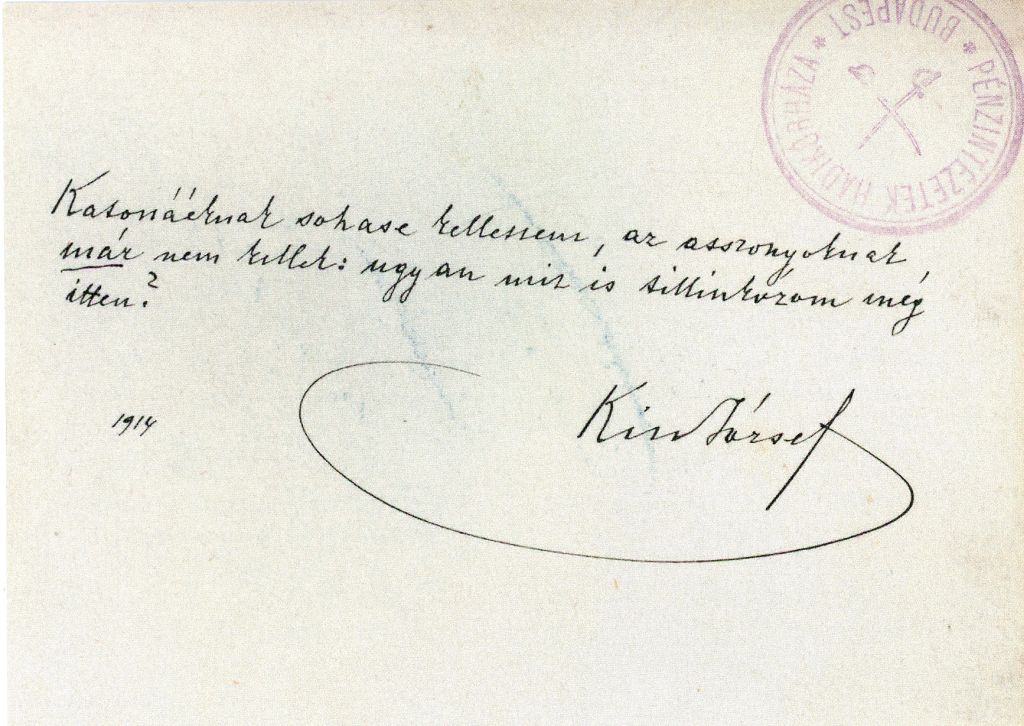 PÉNZINTÉZETEK HADIKÓRHÁZA * BUDAPEST *
Katonáéknak sohase kellettem, az asszonyoknak
már nem kellek: ugyan mit is tillinkozom még
itten?
Kiss József
1914